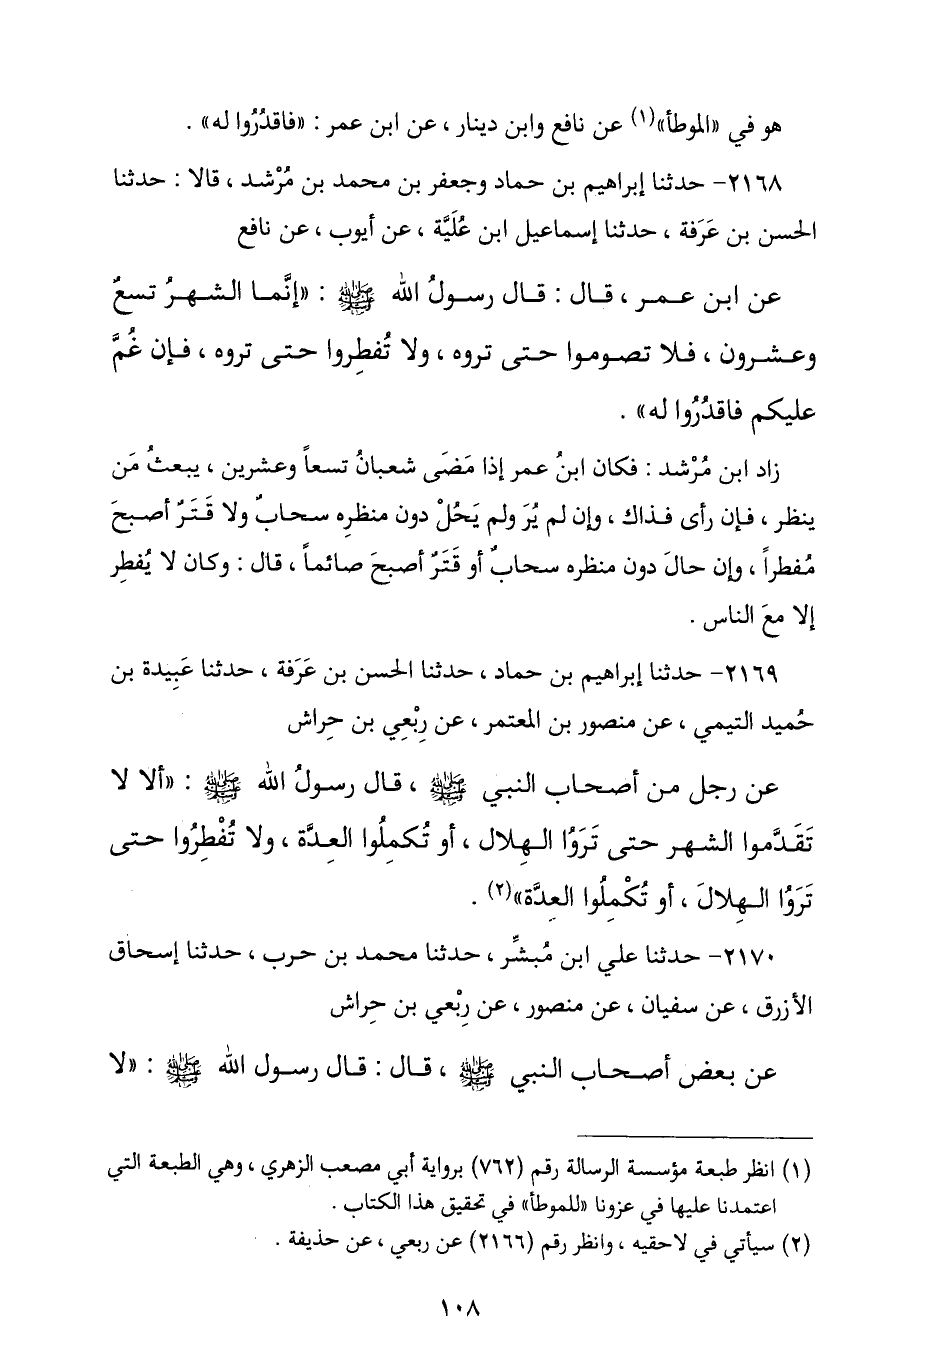 هو في «الموطأ»(١) عن نافع وابن دينار ، عن ابن عمر : «فاقدُرُوا له» .
٢١٦٨- حدثنا إبراهيم بن حماد وجعفر بن محمد بن مُرْشد ، قالا : حدثنا
الحسن بن عَرَفة ، حدثنا إسماعيل ابن عُلَيَّة ، عن أيوب ، عن نافع
عن ابن عمر ، قال : قال رسولُ الله ﷺ : «إنَّما الشهرُ تسعٌ
وعشرون ، فلا تصوموا حتى تروه ، ولا تُفطِروا حتى تروه ، فإن غُمَّ
عليكم فاقدُرُوا له» .
زاد ابن مُرْشد : فكان ابنُ عمر إذا مَضَى شعبانُ تسعاً وعشرين ، يبعثُ مَن
ينظر ، فإن رأى فذاك ، وإن لم يُرَ ولم يَحُلْ دون منظره سحابٌ ولا قَتَرٌ أصبحَ
مُفطراً ، وإن حالَ دون منظره سحابٌ أو قَتَرٌ أصبحَ صائماً ، قال : وكان لا يُفطِر
إلا معَ الناس .
٢١٦٩- حدثنا إبراهيم بن حماد ، حدثنا الحسن بن عَرَفة ، حدثنا عَبِيدة بن
حُميد التيمي ، عن منصور بن المعتمر ، عن رِبْعِي بن حِراش
عن رجل من أصحاب النبي ﷺ ، قال رسولُ الله ﷺ : «ألا لا
تَقَدَّموا الشهر حتى تَرَوُا الهِلال ، أو تُكمِلُوا العِدَّة ، ولا تُفْطِرُوا حتى
تَرَوُا الهِلالَ ، أو تُكْمِلُوا العِدَّة»(٢) .
٢١٧٠- حدثنا علي ابن مُبشِّر ، حدثنا محمد بن حرب ، حدثنا إسحاق
الأزرق ، عن سفيان ، عن منصور ، عن رِبْعي بن حِراش
عن بعض أصحاب النبي ﷺ ، قال : قال رسول الله ﷺ : «لا
(١) انظر طبعة مؤسسة الرسالة رقم (٧٦٢) برواية أبي مصعب الزهري ، وهي الطبعة التي
اعتمدنا عليها في عزونا «للموطأ» في تحقيق هذا الكتاب .
(٢) سيأتي في لاحقيه ، وانظر رقم (٢١٦٦) عن ربعي ، عن حذيفة .
١٠٨